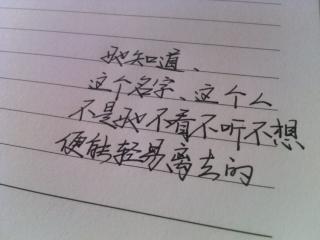 她知道、
这个名字、这个人
不是她不看不听不想
便能轻易离去的